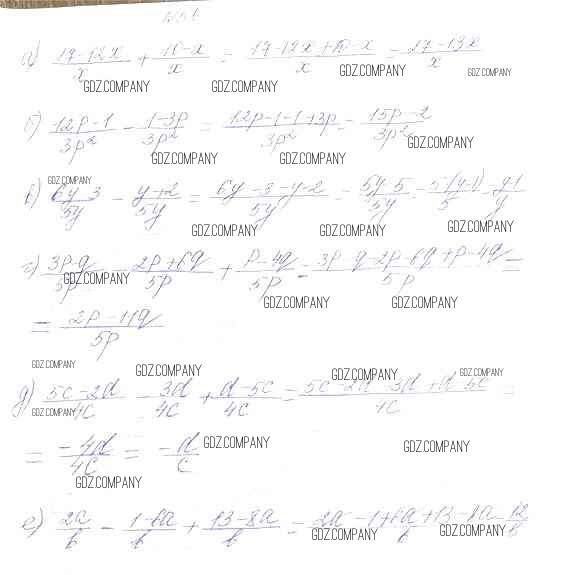 №56
а) (17-12x)/x + (10-x)/x = (17-12x+10-x)/x = (27-13x)/x
GDZ.COMPANY GDZ.COMPANY GDZ.COMPANY GDZ.COMPANY
б) (12p-1)/3p² - (1-3p)/3p² = (12p-1-1+3p)/3p² = (15p-2)/3p²
GDZ.COMPANY GDZ.COMPANY GDZ.COMPANY
GDZ.COMPANY
в) (6y-3)/5y - (y+2)/5y = (6y-3-y-2)/5y = (5y-5)/5y = 5(y-1)/5 = (y-1)/y
GDZ.COMPANY GDZ.COMPANY GDZ.COMPANY
г) (3p-q)/5p - (2p+6q)/5p + (p-4q)/5p = (3p-q-2p-6q+p-4q)/5p =
GDZ.COMPANY GDZ.COMPANY GDZ.COMPANY
= (2p-11q)/5p
GDZ.COMPANY GDZ.COMPANY GDZ.COMPANY GDZ.COMPANY
д) (5c-2d)/4c - 3d/4c + (d-5c)/4c = (5c-2d-3d+d-5c)/4c =
GDZ.COMPANY
= -4d/4c = -d/c
GDZ.COMPANY GDZ.COMPANY
GDZ.COMPANY
е) 2a/b - (1-6a)/b + (13-8a)/b = (2a-1+6a+13-8a)/b = 12/b
GDZ.COMPANY GDZ.COMPANY